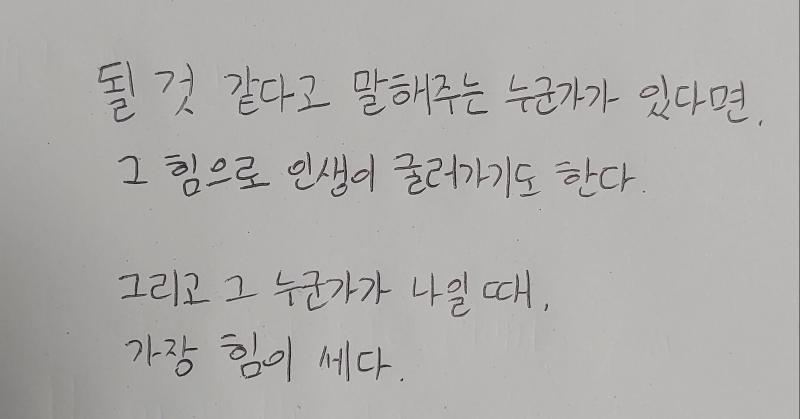 될 것 같다고 말해주는 누군가가 있다면,
그 힘으로 인생이 굴러가기도 한다.
그리고 그 누군가가 나일 때,
가장 힘이 세다.